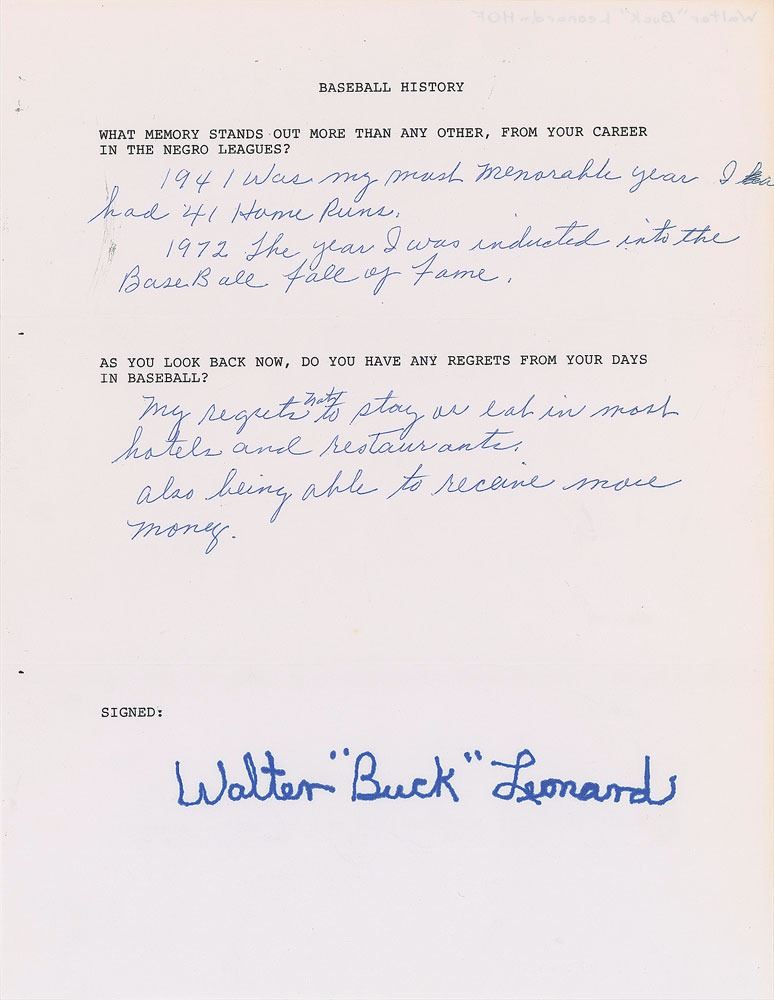 BASEBALL HISTORY
WHAT MEMORY STANDS OUT MORE THAN ANY OTHER, FROM YOUR CAREER
IN THE NEGRO LEAGUES?
1941 Was my most Menorable year I
had 41 Home Runs.
1972 The year I was inducted into the
BaseBall fall of Fame.
AS YOU LOOK BACK NOW, DO YOU HAVE ANY REGRETS FROM YOUR DAYS
IN BASEBALL?
My regrets to stay or eat in most
hotels and restaurants.
also being able to receive more
money.
SIGNED:
Walter "Buck" Leonard